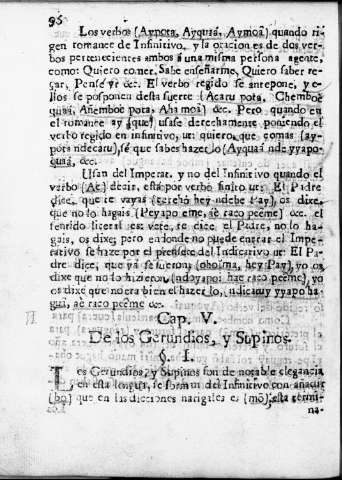 96
Los verbos (Aypota, Ayquaá, Aymoâ) quando ri-
gen romance de Infinitivo, y la oracion es de dos ver-
bos pertenecientes ambos á una misma persona agente,
como: Quiero comer, Sabe enseñarme, Quiero saber re-
çar, Pensé yr &c. El verbo regido se antepone, y e-
llos se posponen desta suerte (Acaru pota, Chemboé
quaá, Añemboé pota: Aha moâ) &c. Pero quando en
el romance ay (que) usase derechamente poniendo el
verbo regido en infinitivo, ut: quiero, que comas (ay-
pota ndecaru), sé que sabes hazerlo (Ayquaá nde yyapo-
quaá, &c.
Usan del Imperat. y no del Infinitivo quando el
verbo (Aé) decir, está por verbo finito ut: El Padre
dice, que te vayas (tereho hey ndebe Pay), os dixe,
que no lo hagais (Peyapo eme, aé raco peême) &c. el
sentido literal es: vete, se dice el Padre, no lo ha-
gais, os dixe; pero en donde no puede entrar el Impe-
rativo se haze por el presente del Indicativo ut: El Pa-
dre dice, que yá se fueron, (oboima, hey Pay), yo os
dixe que no lo hizieron, (ndoyapoi: haé raco peême), yo
os dixe que no era bien el hazerlo, (ndicatuy yyapo ha-
gua, aé raco peême &c.
Cap. V.
De los Gerundios, y Supinos.
§. I.
Los Gerundios, y Supinos son de notable elegancia
en esta lengua, se forman del Infinitivo con añadir
(bo) que en las dicciones narigales es (mo) esta termi-
na-